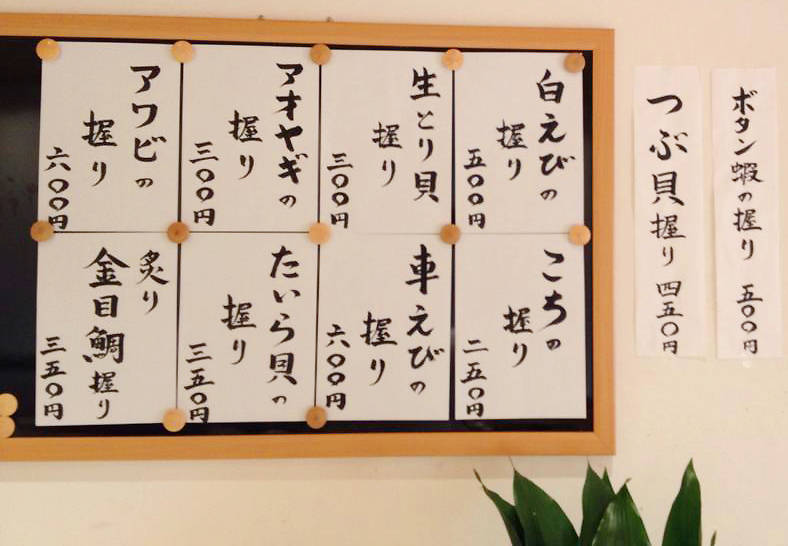 ボタン蝦の握り 五〇〇円
つぶ貝握り 四五〇円
白えびの
握り
五〇〇円
生とり貝
握り
三〇〇円
アオヤギの
握り
三〇〇円
アワビの
握り
六〇〇円
こちの
握り
二五〇円
車えびの
握り
六〇〇円
たいら貝の
握り
三五〇円
炙り
金目鯛握り
三五〇円